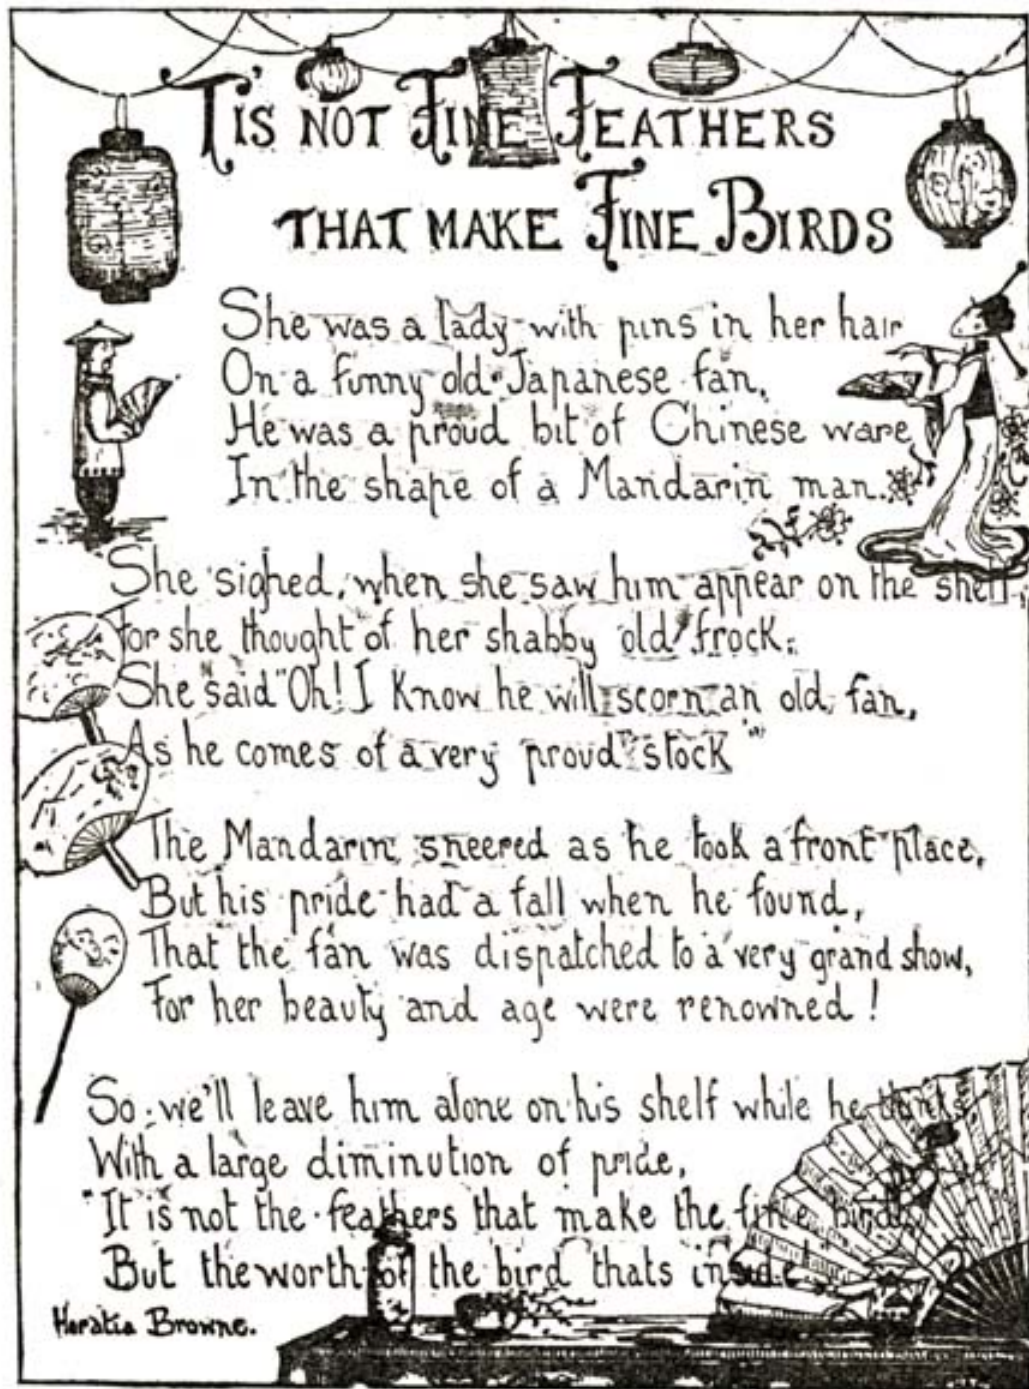 T'IS NOT FINE FEATHERS
THAT MAKE FINE BIRDS
She was a lady with pins in her hair
On a funny old Japanese fan,
He was a proud bit of Chinese ware
In the shape of a Mandarin man.
She sighed, when she saw him appear on the shelf,
For she thought of her shabby old frock;
She said "Oh! I know he will scorn an old fan,
As he comes of a very proud stock"
The Mandarin sneered as he took a front place,
But his pride had a fall when he found,
That the fan was dispatched to a very grand show,
For her beauty and age were renowned!
So we'll leave him alone on his shelf while he thinks,
With a large diminution of pride,
"It is not the feathers that make the fine birds
But the worth of the bird thats inside"
Horatia Browne.